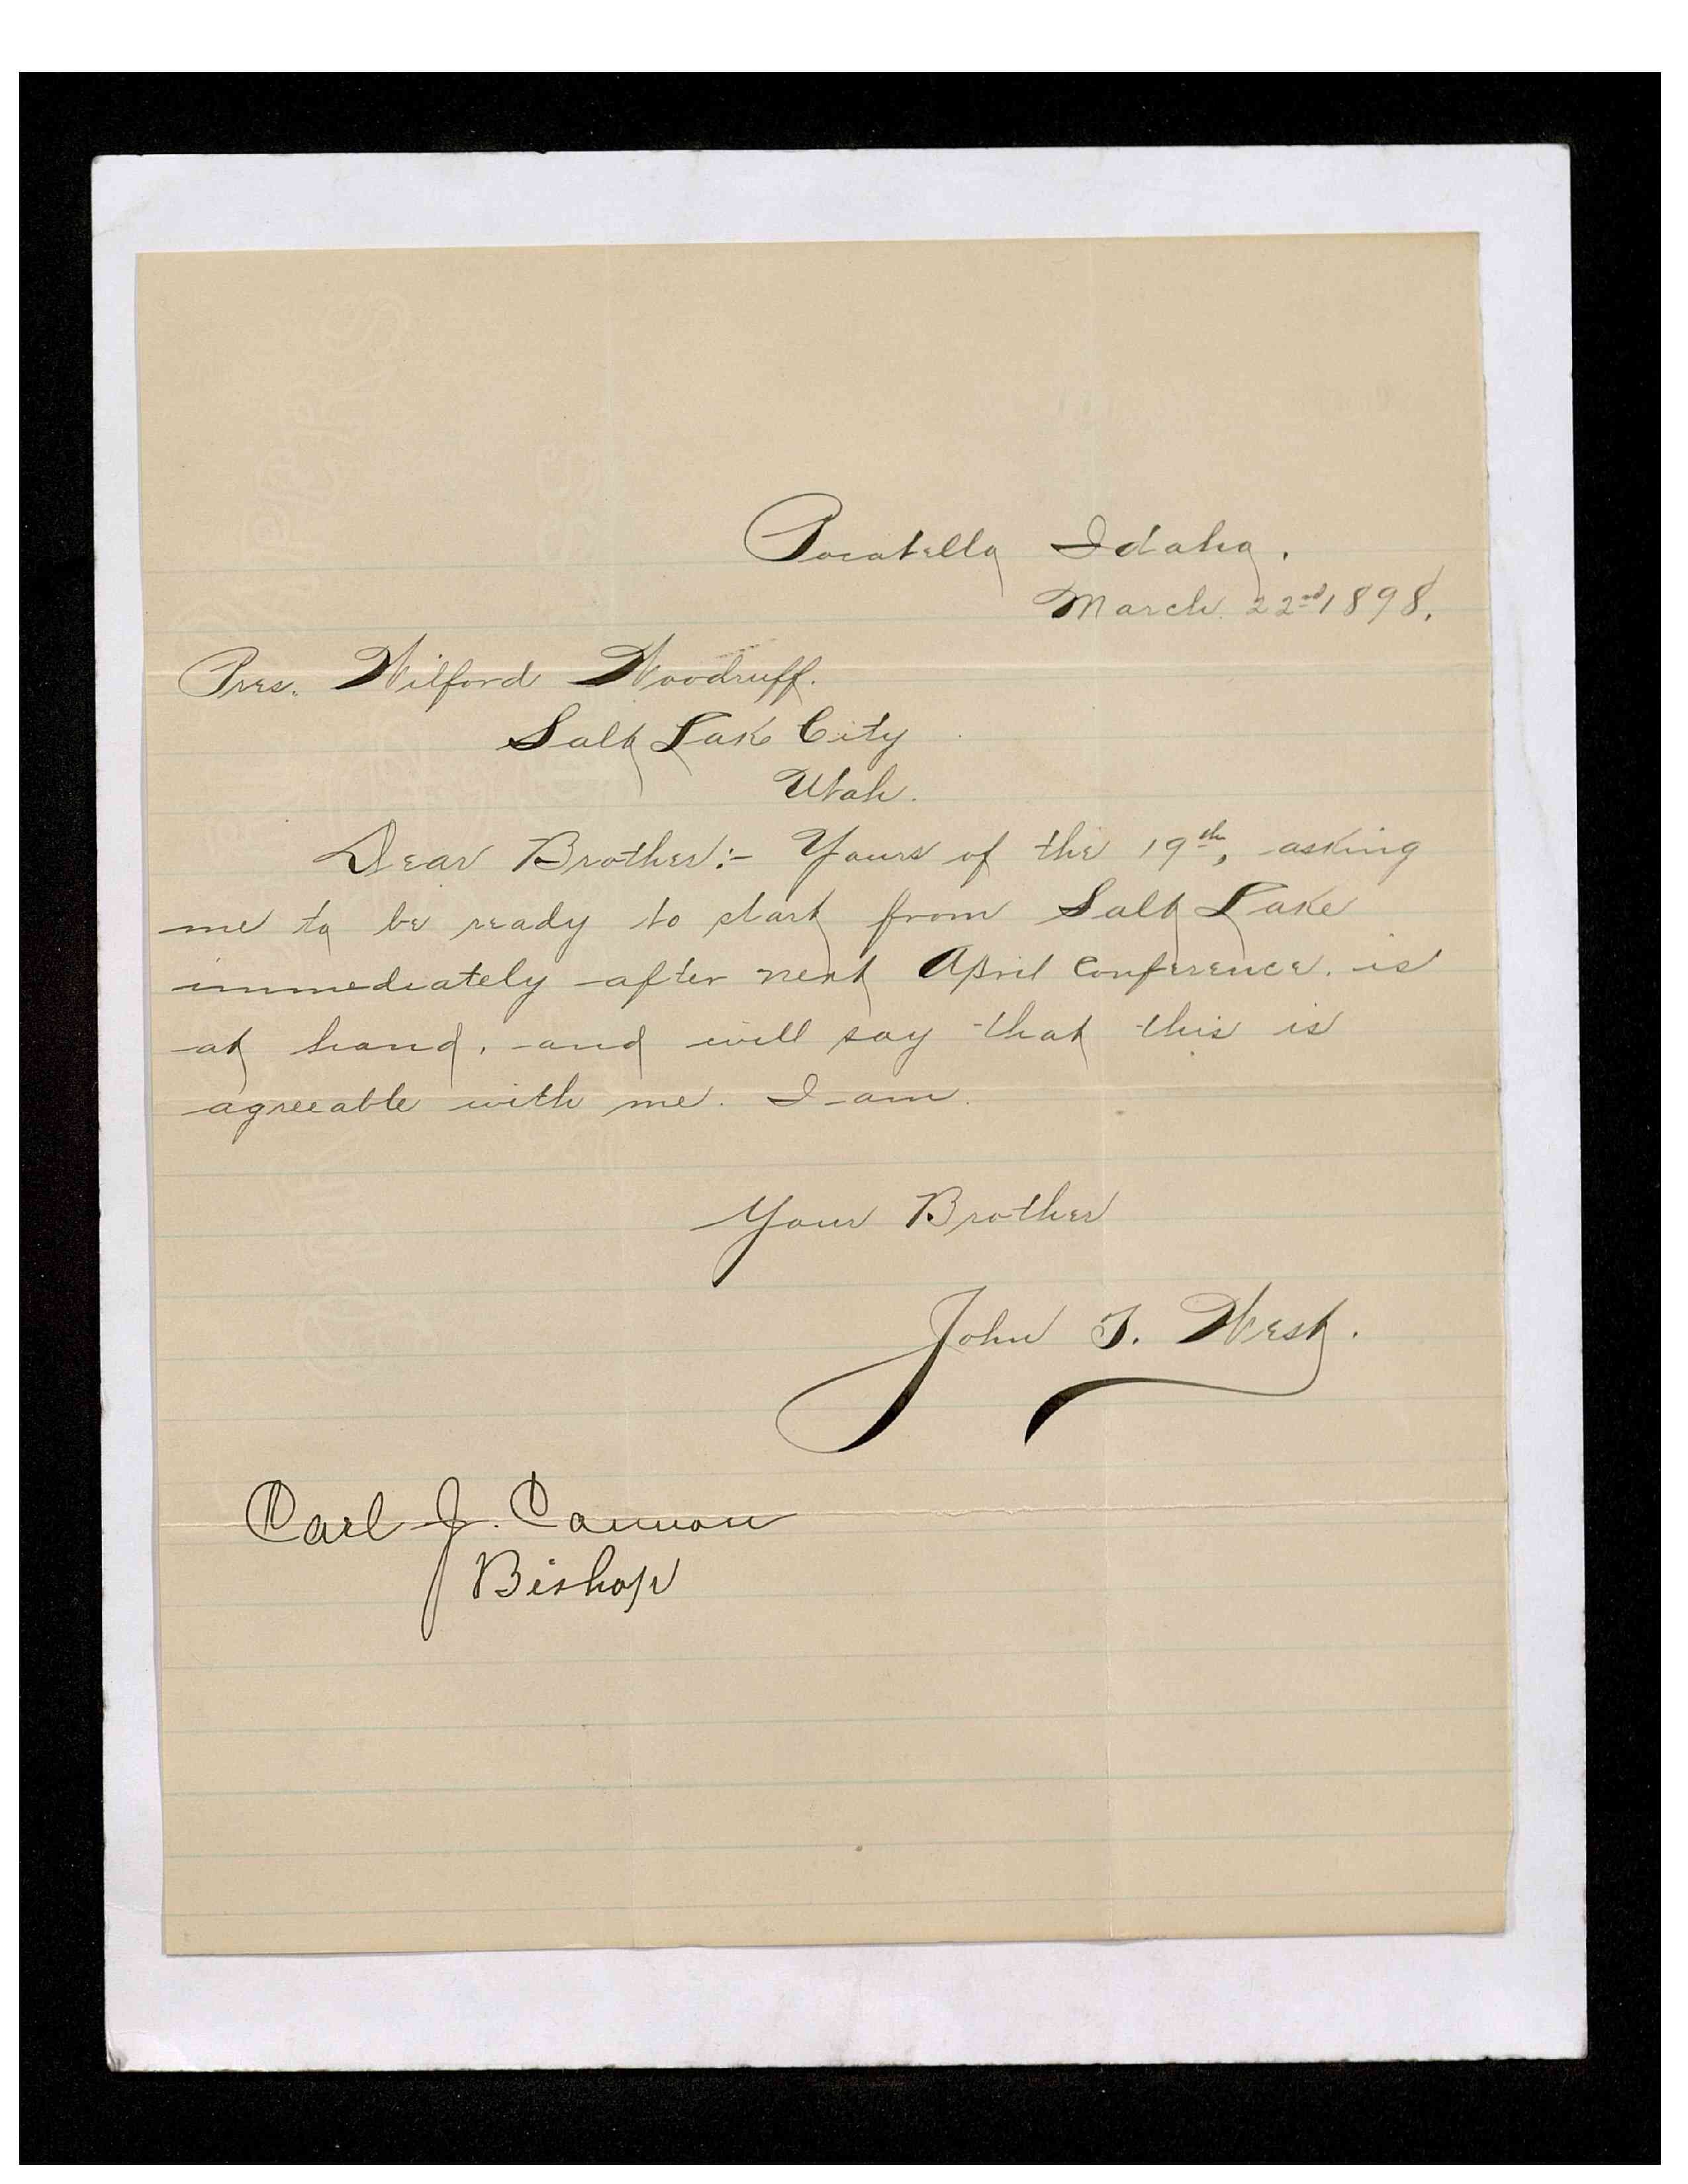 Pocatello Idaho.
March. 22nd 1898.
Pres. Wilford Woodruff.
Salt Lake City
Utah.
Dear Brother:- Yours of the 19th, asking
me to be ready to start from Salt Lake
immediately after next April Conference. is
at hand, and will say that this is
agreeable with me. I am.
Your Brother
John T. West.
Carl J. Cannon
Bishop